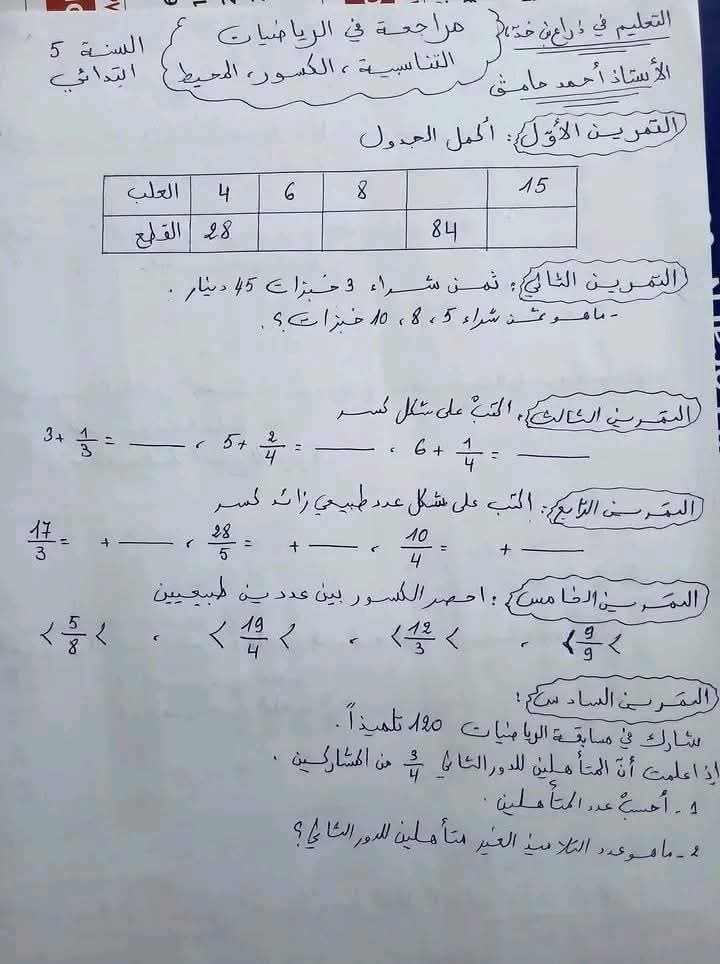 التعليم في ذراع بن خدة،
الأستاذ أحمد حامق
مراجعة في الرياضيات
التناسبية، الكسور، المحيط
السنة 5
ابتدائي
التمرين الأول: أكمل الجدول
العلب 4 6 8 15
القطع 28 84
التمرين الثاني: ثمن شراء 3 خبزات 45 دينار.
- ماهو ثمن شراء 5، 8، 10 خبزات؟.
التمرين الثالث: اكتب على شكل كسر
6 + 1/4 = ، 5 + 2/4 = ، 3 + 1/3 =
التمرين الرابع: اكتب على شكل عدد طبيعي زائد كسر
10/4 = + ، 28/5 = + ، 17/3 = +
التمرين الخامس: احصر الكسور بين عددين طبيعيين
< 9/9 < ، < 12/3 < ، < 19/4 < ، < 5/8 <
التمرين السادس:
شارك في مسابقة الرياضيات 120 تلميذاً.
إذا علمت أنّ المتأهلين للدور الثاني 3/4 من المشاركين.
1 - أحسبْ عدد المتأهلين.
2 - ماهو عدد التلاميذ الغير متأهلين للدور الثاني؟